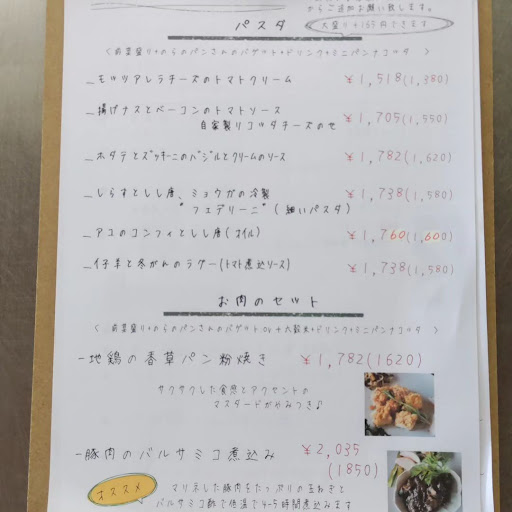 からご追加お願い致します。
パスタ
大盛り+165円できます
〈 前菜盛り+のらのパンさんのバゲット+ドリンク+ミニパンナコッタ 〉
モッツアレラチーズのトマトクリーム ¥1,518(1,380)
揚げナスとベーコンのトマトソース ¥1,705(1,550)
自家製リコッタチーズのせ
ホタテとズッキーニのバジルとクリームのソース ¥1,782(1,620)
しらすとしし唐、ミョウガの冷製 ¥1,738(1,580)
"フェデリーニ"(細いパスタ)
アコのコンフィとしし唐(オイル) ¥1,760(1,600)
仔羊と冬がんのラグー(トマト煮込ソース) ¥1,738(1,580)
お肉のセット
〈 前菜盛り+のらのパンさんのバゲットor+六穀米+ドリンク+ミニパンナコッタ 〉
-地鶏の香草パン粉焼き ¥1,782(1620)
サクサクした食感とアクセントの
マスタードがやみつき♪
-豚肉のバルサミコ煮込み ¥2,035
(1850)
オススメ
マリネした豚肉をたっぷりの玉ねぎと
バルサミコ酢で低温で4~5時間煮込みます